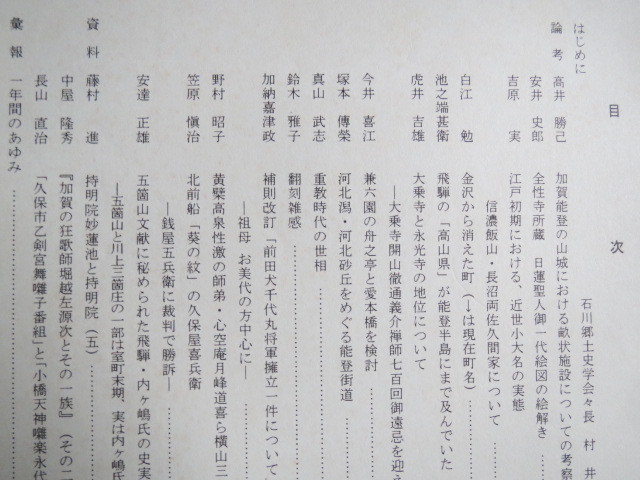 目次
はじめに 石川郷土史学会々長 村井
論考 高井勝己 加賀能登の山城における畝状施設についての考察
安井史郎 全性寺所蔵 日蓮聖人御一代絵図の絵解き……
吉原実 江戸初期における、近世小大名の実態
信濃飯山・長沼両佐久間家について……
白江勉 金沢から消えた町(↓は現在町名)……
池之端甚衛 飛騨の「高山県」が能登半島にまで及んでいた
虎井吉雄 大乗寺と永光寺の地位について
―大乗寺開山徹通義介禅師七百回御遠忌を迎え
今井喜江 兼六園の舟之亭と愛本橋を検討……
塚本傳榮 河北潟・河北砂丘をめぐる能登街道……
真山武志 重教時代の世相……
鈴木雅子 翻刻雑感……
加納嘉津政 補則改訂「前田犬千代丸将軍擁立一件について
―祖母 お美代の方中心に―……
野村昭子 黄檗高泉性激の師弟・心空庵月峰道喜ら横山三
笠原慎治 北前船「葵の紋」の久保屋喜兵衛
―銭屋五兵衛に裁判で勝訴―……
安達正雄 五箇山文献に秘められた飛騨・内ヶ嶋氏の史実
―五箇山と川上三箇庄の一部は室町末期、実は内ヶ嶋氏
資料 藤村進 持明院妙蓮池と持明院(五)……
中屋隆秀 『加賀の狂歌師堀越左源次とその一族』(その二
長山直治 「久保市乙剣宮舞囃子番組」と「小橋天神囃楽永代
彙報 一年間のあゆみ……